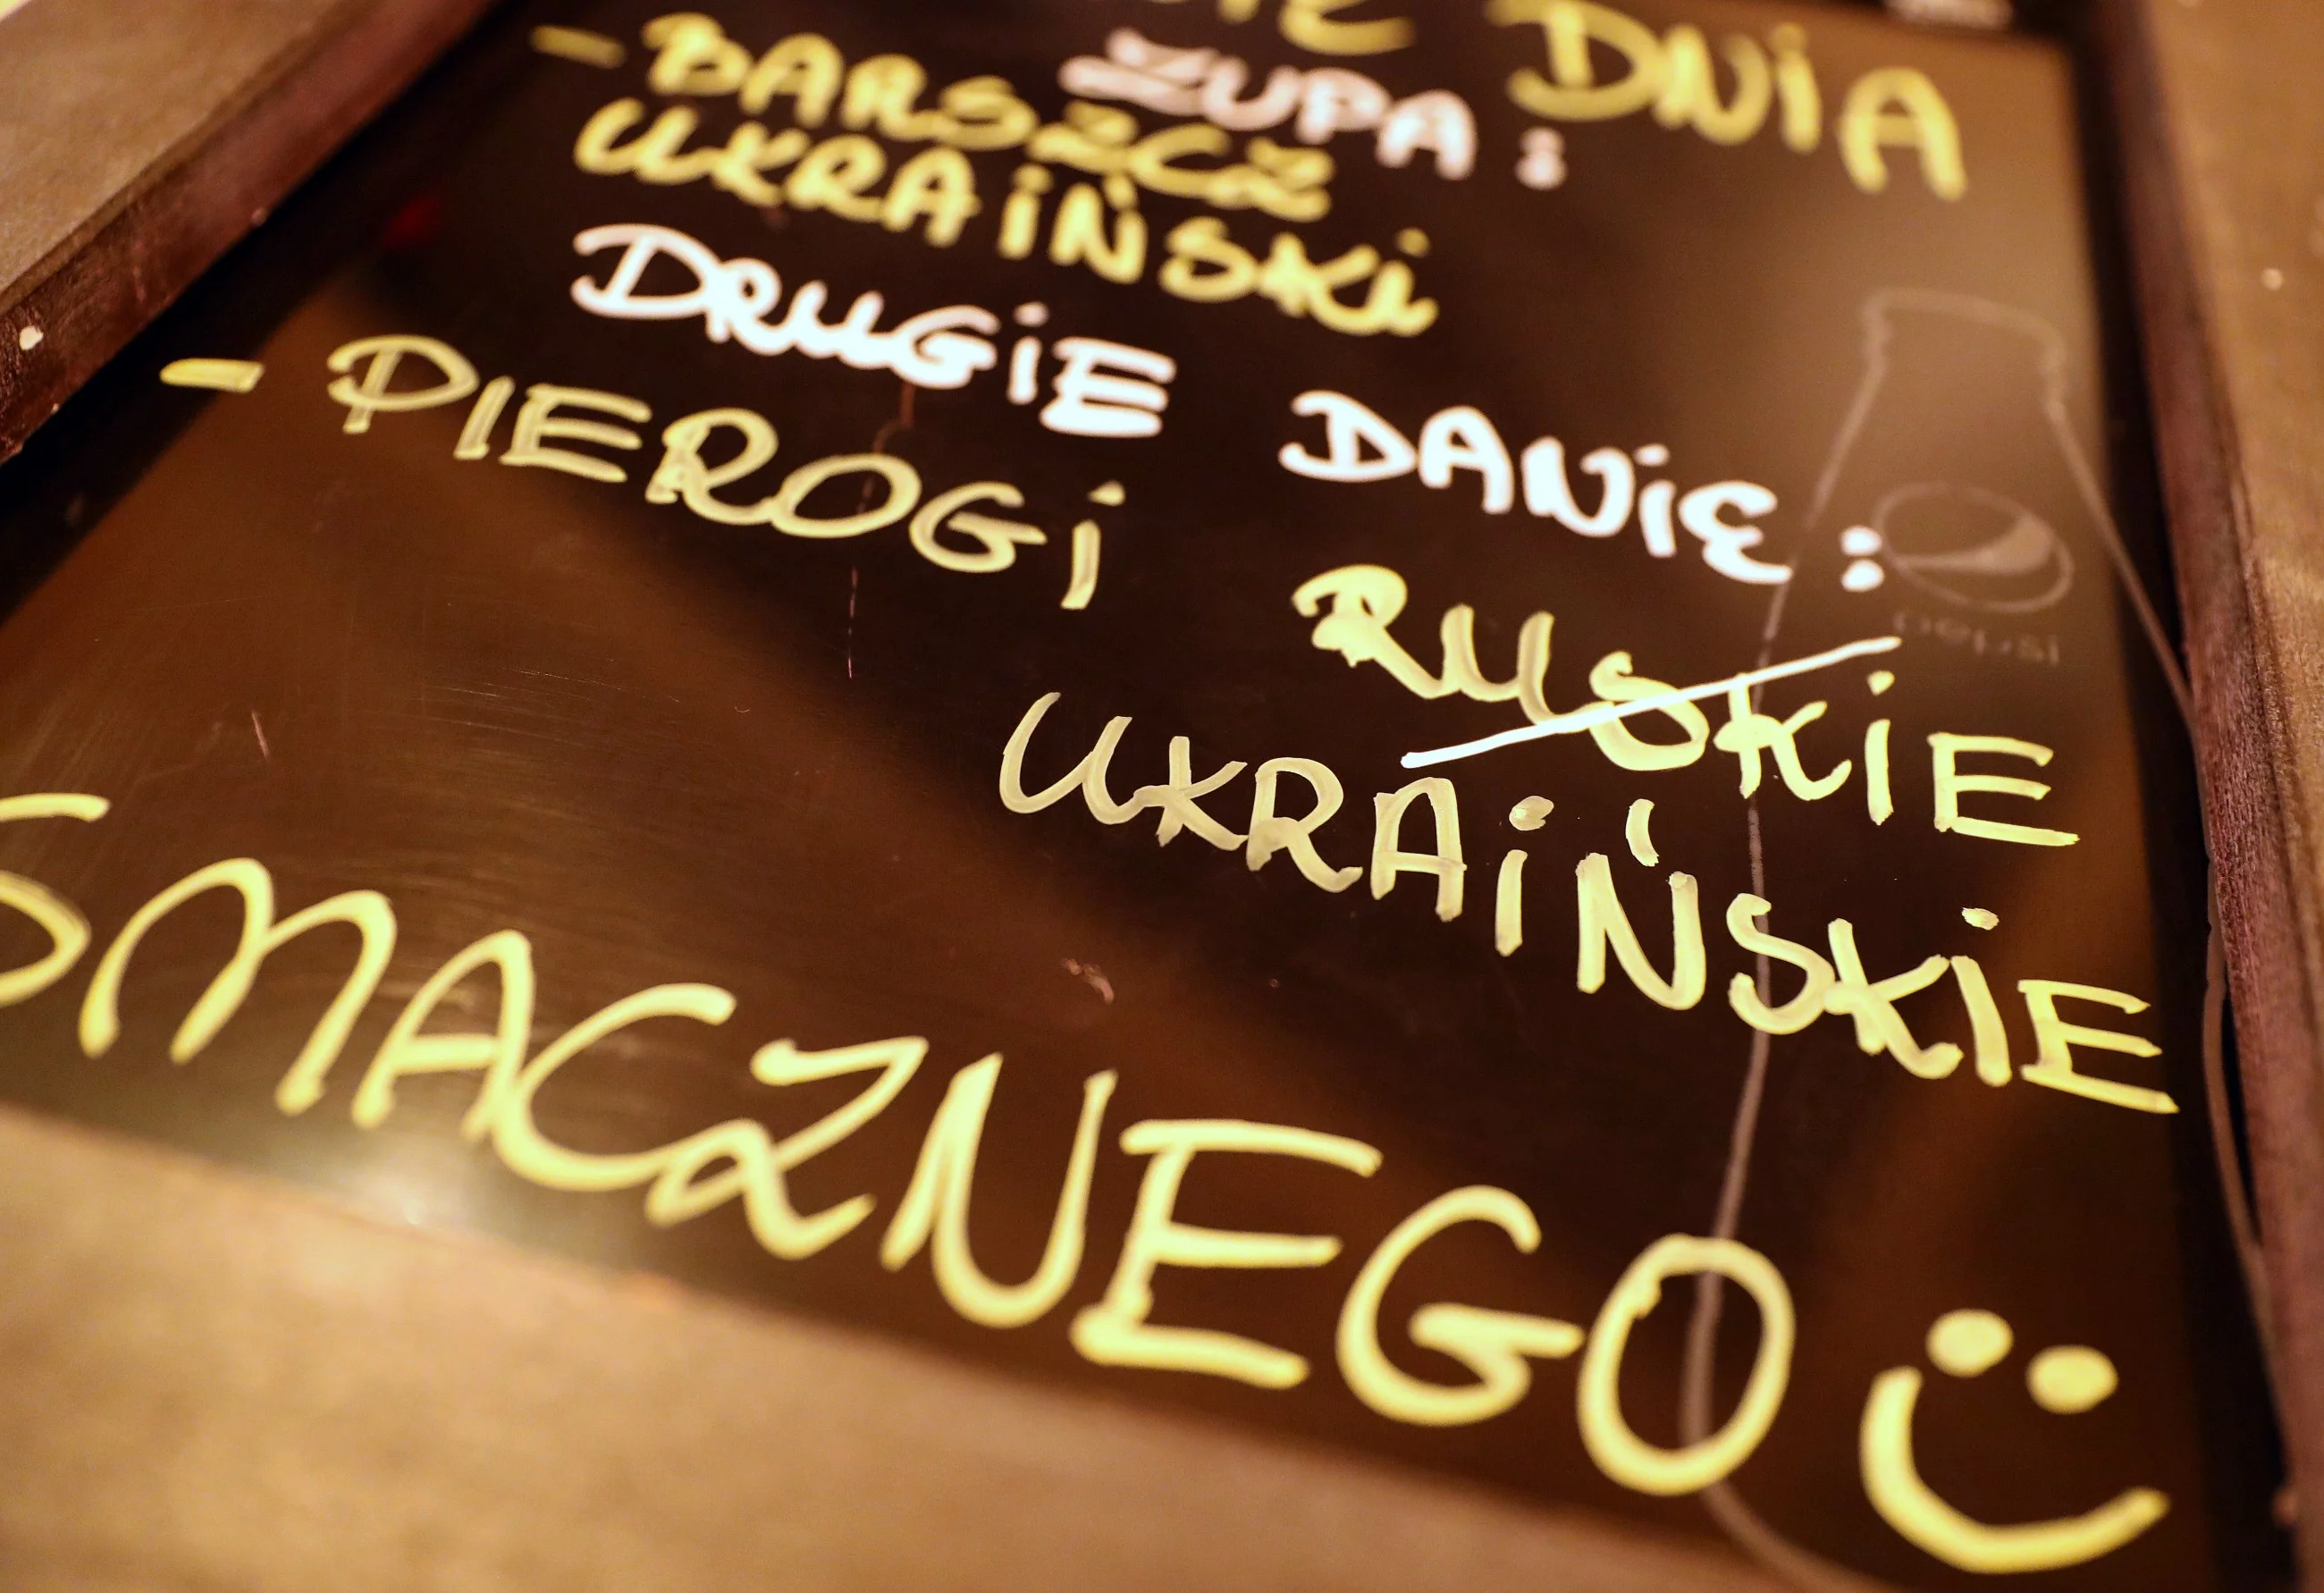 DNIA
ZUPA:
- BARSZCZ
UKRAIŃSKI
DRUGIE DANIE:
- PIEROGI
RUSKIE
UKRAIŃSKIE
SMACZNEGO
pepsi